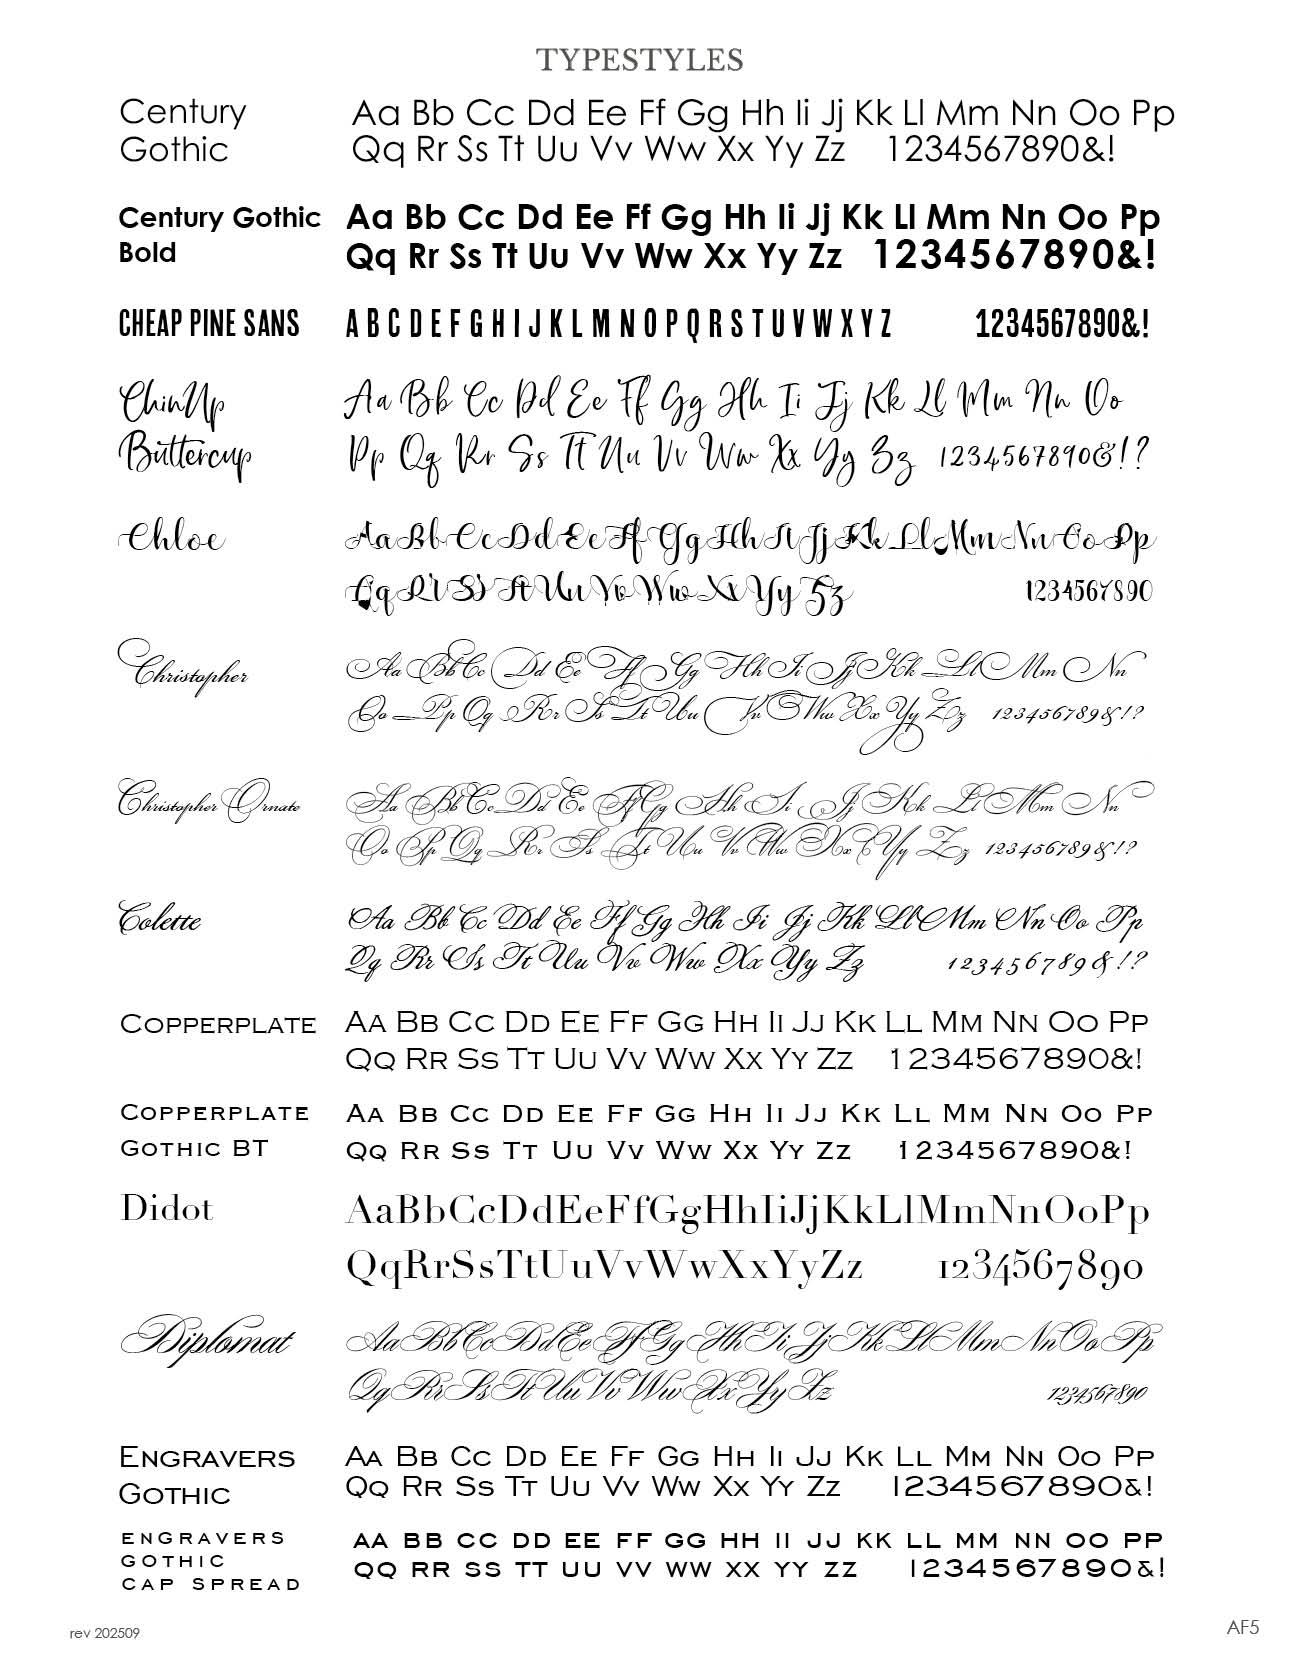 TYPESTYLES
Century
Gothic
Aa Bb Cc Dd Ee Ff Gg Hh Ii Jj Kk Ll Mm Nn Oo Pp
Qq Rr Ss Tt Uu Vv Ww Xx Yy Zz 1234567890&!
Century Gothic
Bold
Aa Bb Cc Dd Ee Ff Gg Hh Ii Jj Kk Ll Mm Nn Oo Pp
Qq Rr Ss Tt Uu Vv Ww Xx Yy Zz 1234567890&!
CHEAP PINE SANS
A B C D E F G H I J K L M N O P Q R S T U V W X Y Z 1234567890&!
ChinUp
Buttercup
Aa Bb Cc Dd Ee Ff Gg Hh Ii Jj Kk Ll Mm Nn Oo
Pp Qq Rr Ss Tt Uu Vv Ww Xx Yy Zz 1234567890&!?
Chloe
AaBbCcDdEeFfGgHhIiJjKkLlMmNnOoPp
QqRrSsTtUuVvWwXxYyZz 1234567890
Christopher
Aa Bb Cc Dd Ee Ff Gg Hh Ii Jj Kk Ll Mm Nn
Oo Pp Qq Rr Ss Tt Uu Vv Ww Xx Yy Zz 123456789&!?
Christopher Ornate
Aa Bb Cc Dd Ee Ff Gg Hh Ii Jj Kk Ll Mm Nn
Oo Pp Qq Rr Ss Tt Uu Vv Ww Xx Yy Zz 123456789&!?
Colette
Aa Bb Cc Dd Ee Ff Gg Hh Ii Jj Kk Ll Mm Nn Oo Pp
Qq Rr Ss Tt Uu Vv Ww Xx Yy Zz 123456789&!?
COPPERPLATE
AA BB CC DD EE FF GG HH II JJ KK LL MM NN OO PP
QQ RR SS TT UU VV WW XX YY ZZ 1234567890&!
COPPERPLATE
GOTHIC BT
AA BB CC DD EE FF GG HH II JJ KK LL MM NN OO PP
QQ RR SS TT UU VV WW XX YY ZZ 1234567890&!
Didot
AaBbCcDdEeFfGgHhIiJjKkLlMmNnOoPp
QqRrSsTtUuVvWwXxYyZz 1234567890
Diplomat
AaBbCcDdEeFfGgHhIiJjKkLlMmNnOoPp
QqRrSsTtUuVvWwXxYyZz 1234567890
ENGRAVERS
GOTHIC
AA BB CC DD EE FF GG HH II JJ KK LL MM NN OO PP
QQ RR SS TT UU VV WW XX YY ZZ 1234567890&!
ENGRAVERS
GOTHIC
CAP SPREAD
AA BB CC DD EE FF GG HH II JJ KK LL MM NN OO PP
QQ RR SS TT UU VV WW XX YY ZZ 1234567890&!
rev 202509
AF5